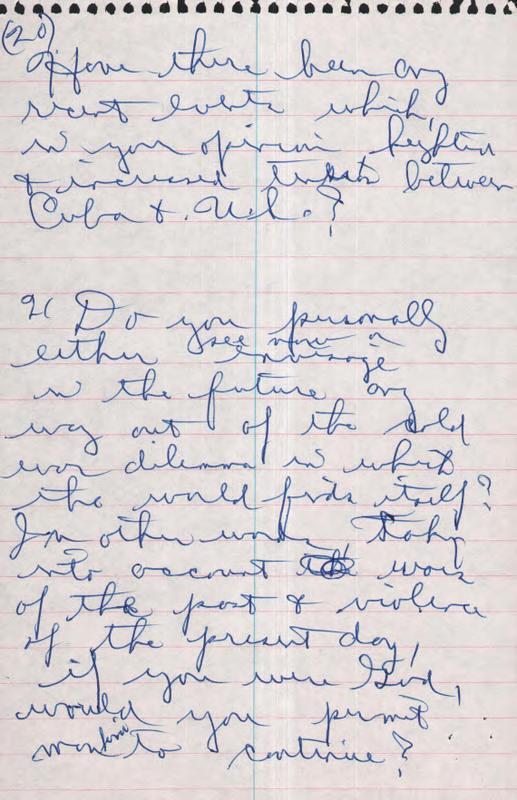 (20)
Have there been any
recent events which,
in your opinion heighten
& increased tension between
Cuba & U.S.?
21 Do you personally
see now or
either envisage
in the future any
way out of the cold
war dilemma in which
the world finds itself?
In other words, taking
into account the wars
of the past & violence
of the present day,
if you were God,
would you permit
mankind to continue?